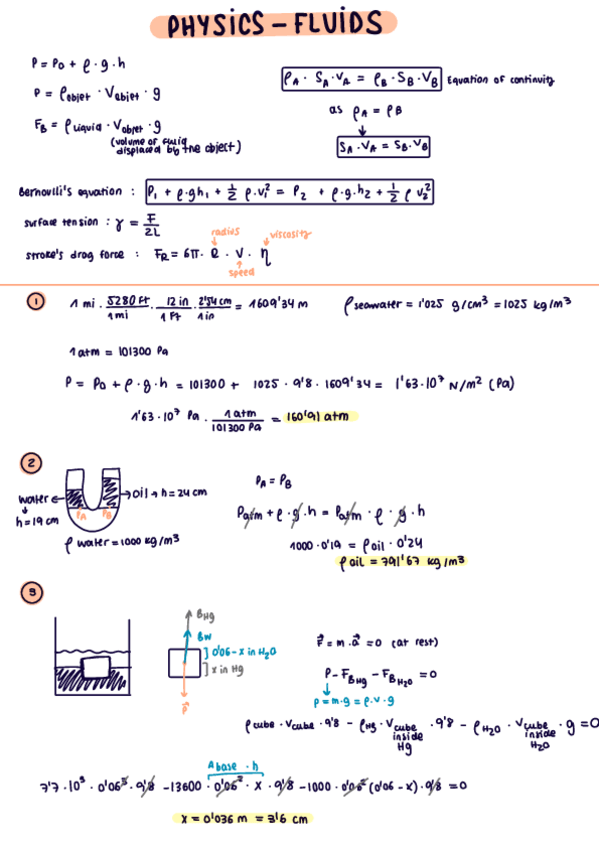 PHYSICS - FLUIDS
P = P₀ + ρ · g · h
P = ρobjet · Vobjet · g
FB = ρliquid · Vobjet · g
(volume of fluid displaced by the object)
ρA · SA · vA = ρB · SB · VB Equation of continuity
as ρA = ρB
SA · vA = SB · VB
Bernoulli's equation : P₁ + ρ·gh₁ + ½ ρ·v₁² = P₂ + ρ·g·h₂ + ½ ρ v₂²
surface tension : γ = F/2L
radius viscosity
stroke's drag force : FR = 6π · R · v · η
speed
1
1 mi · 5280 ft/1 mi · 12 in/1 ft · 2'54 cm/1 in = 1609'34 m
ρ seawater = 1'025 g/cm³ = 1025 kg/m³
1 atm = 101300 Pa
P = P₀ + ρ · g · h = 101300 + 1025 · 9'8 · 1609'34 = 1'63·10⁷ N/m² (Pa)
1'63·10⁷ Pa · 1 atm/101300 Pa = 160'91 atm
2
water
h = 19 cm
oil → h = 24 cm
PA PB
ρ water = 1000 kg/m³
PA = PB
Patm + ρ · g · h = Patm · ρ · g · h
1000 · 0'19 = ρoil · 0'24
ρ oil = 791'67 kg/m³
3
BHg
BW
0'06 - x in H₂O
x in Hg
P
F = m · a = 0 (at rest)
P - FBHg - FBH₂O = 0
P = m·g = ρ·v·g
ρcube · Vcube · 9'8 - ρHg · Vcube inside Hg · 9'8 - ρH₂O · Vcube inside H₂O · g = 0
Abase · h
7'7 · 10³ · 0'06³ · 9'8 - 13600 · 0'06² · x · 9'8 - 1000 · 0'06² (0'06 - x) · 9'8 = 0
x = 0'036 m = 3'6 cm